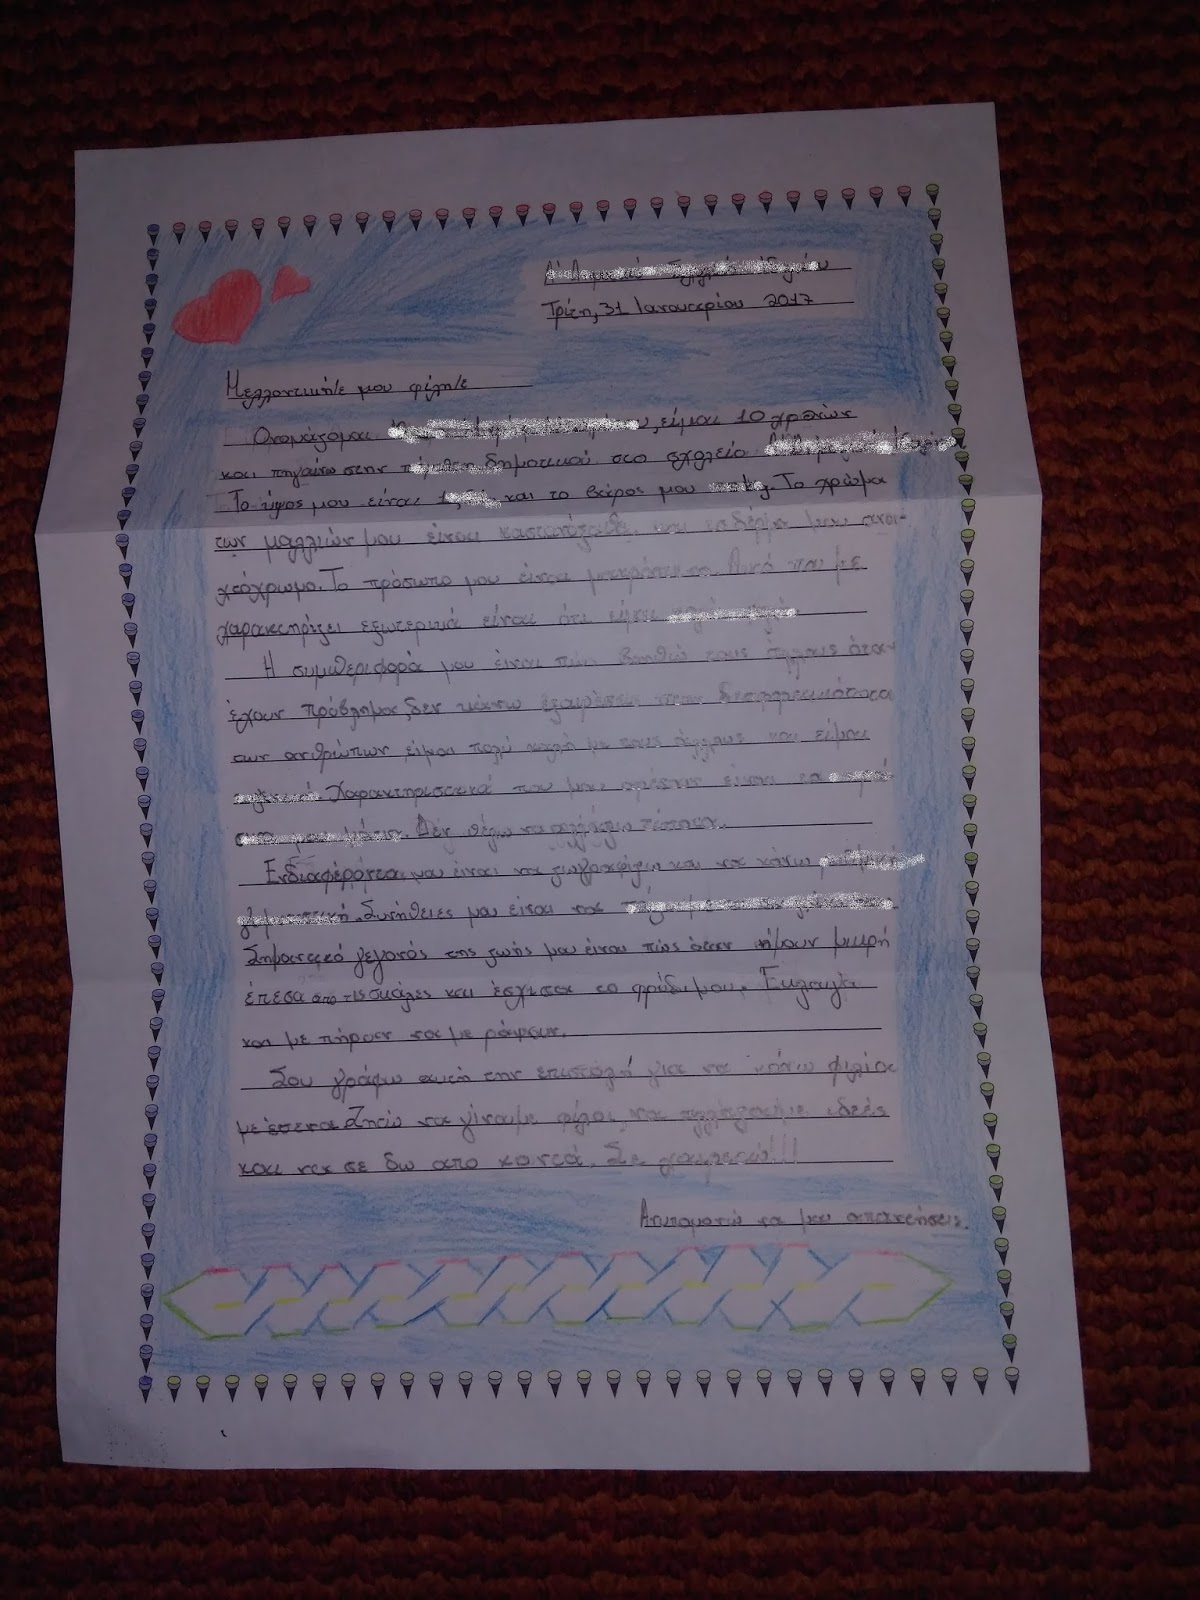 Τρίτη, 31 Ιανουαρίου 2017
Μελλοντική/ε μου φίλη/ε
Ονομάζομαι είμαι 10 χρονών
και πηγαίνω στην δημοτικού στο σχολείο
Το ύψος μου είναι και το βάρος μου Το χρώμα
των μαλλιών μου είναι καστανόξανθο και το δέρμα μου ανοι-
χτόχρωμο. Το πρόσωπο μου είναι Αυτό που με
χαρακτηρίζει εξωτερικά είναι ότι είμαι
Η συμπεριφορά μου είναι πώς βοηθώ τους άλλους όταν
έχουν πρόβλημα, δεν κάνω εξαιρέσεις στην διαφορετικότητα
των ανθρώπων, είμαι πολύ καλή με τους άλλους και είμαι
Χαρακτηριστικά που μου αρέσουν είναι τα
Δεν θέλω να αλλάξω τίποτα.
Ενδιαφέροντα μου είναι να ζωγραφίζω και να κάνω
Συνήθειες μου είναι να
Σημαντικό γεγονός της ζωής μου είναι πώς όταν ήμουν μικρή
έπεσα από τις σκάλες και έσχισα το φρύδι μου. Έκλαιγα
και με πήραν να με ράψουν.
Σου γράφω αυτή την επιστολή για να κάνω φιλία
με έσενα. Ζητώ να γίνουμε φίλοι, να ανταλλάξουμε ιδέες
και να σε δω απο κοντά. Σε χαιρετώ!!!
Ανυπομονώ να μου απαντήσεις.